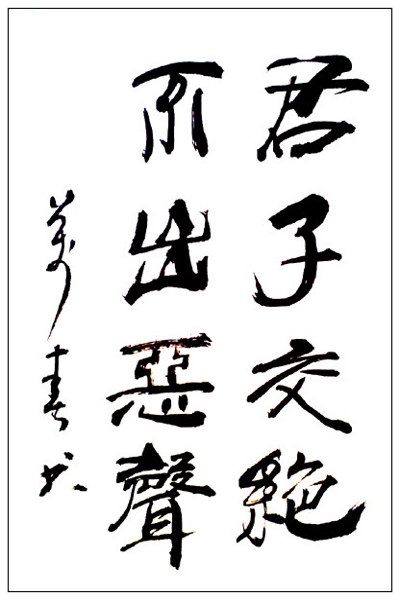 君子交絕
不出惡聲